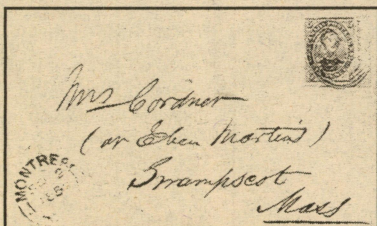 Mrs Cordner
(at Eben Martin's)
Swampscot
Mass
MONTREAL